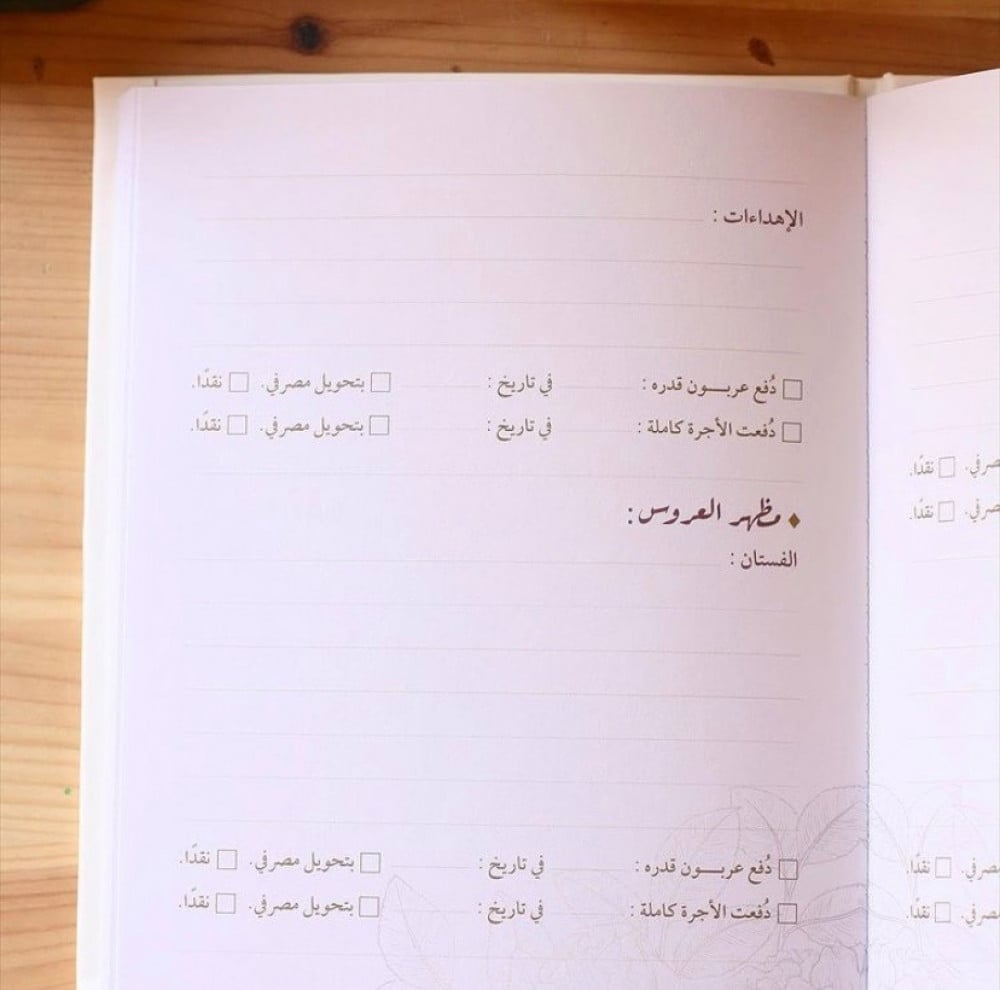 الإهداءات :
دُفع عربـــون قدره : في تاريخ : بتحويل مصرفي. نقدًا.
دُفعت الأجرة كاملة : في تاريخ : بتحويل مصرفي. نقدًا.
مظهر العروس :
الفستان :
دُفع عربـــون قدره : في تاريخ : بتحويل مصرفي. نقدًا.
دُفعت الأجرة كاملة : في تاريخ : بتحويل مصرفي. نقدًا.
نقدًا.
نقدًا.
نقدًا.
نقدًا.